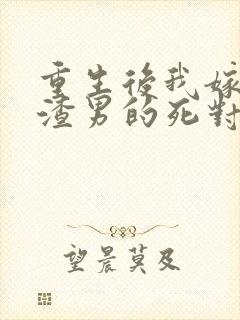 重生後我嫁
渣男的死對
望晨莫及